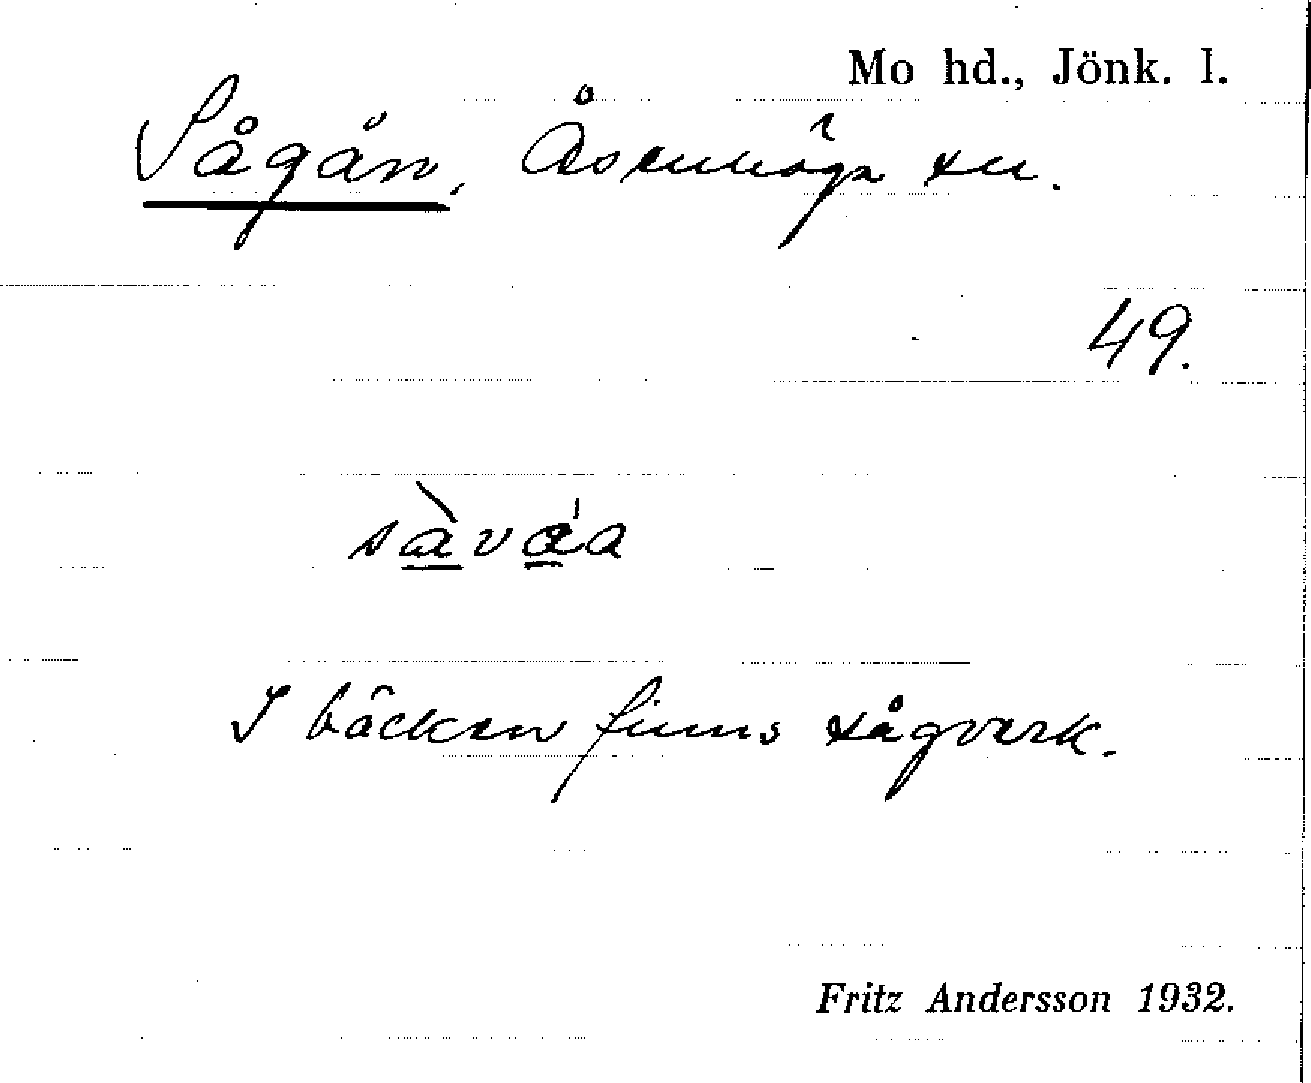 Mo hd., Jönk. l.
Sågån, Åsenhöga sn.
49.
sàváa
I bäcken finns sågverk.
Fritz Andersson 1932.